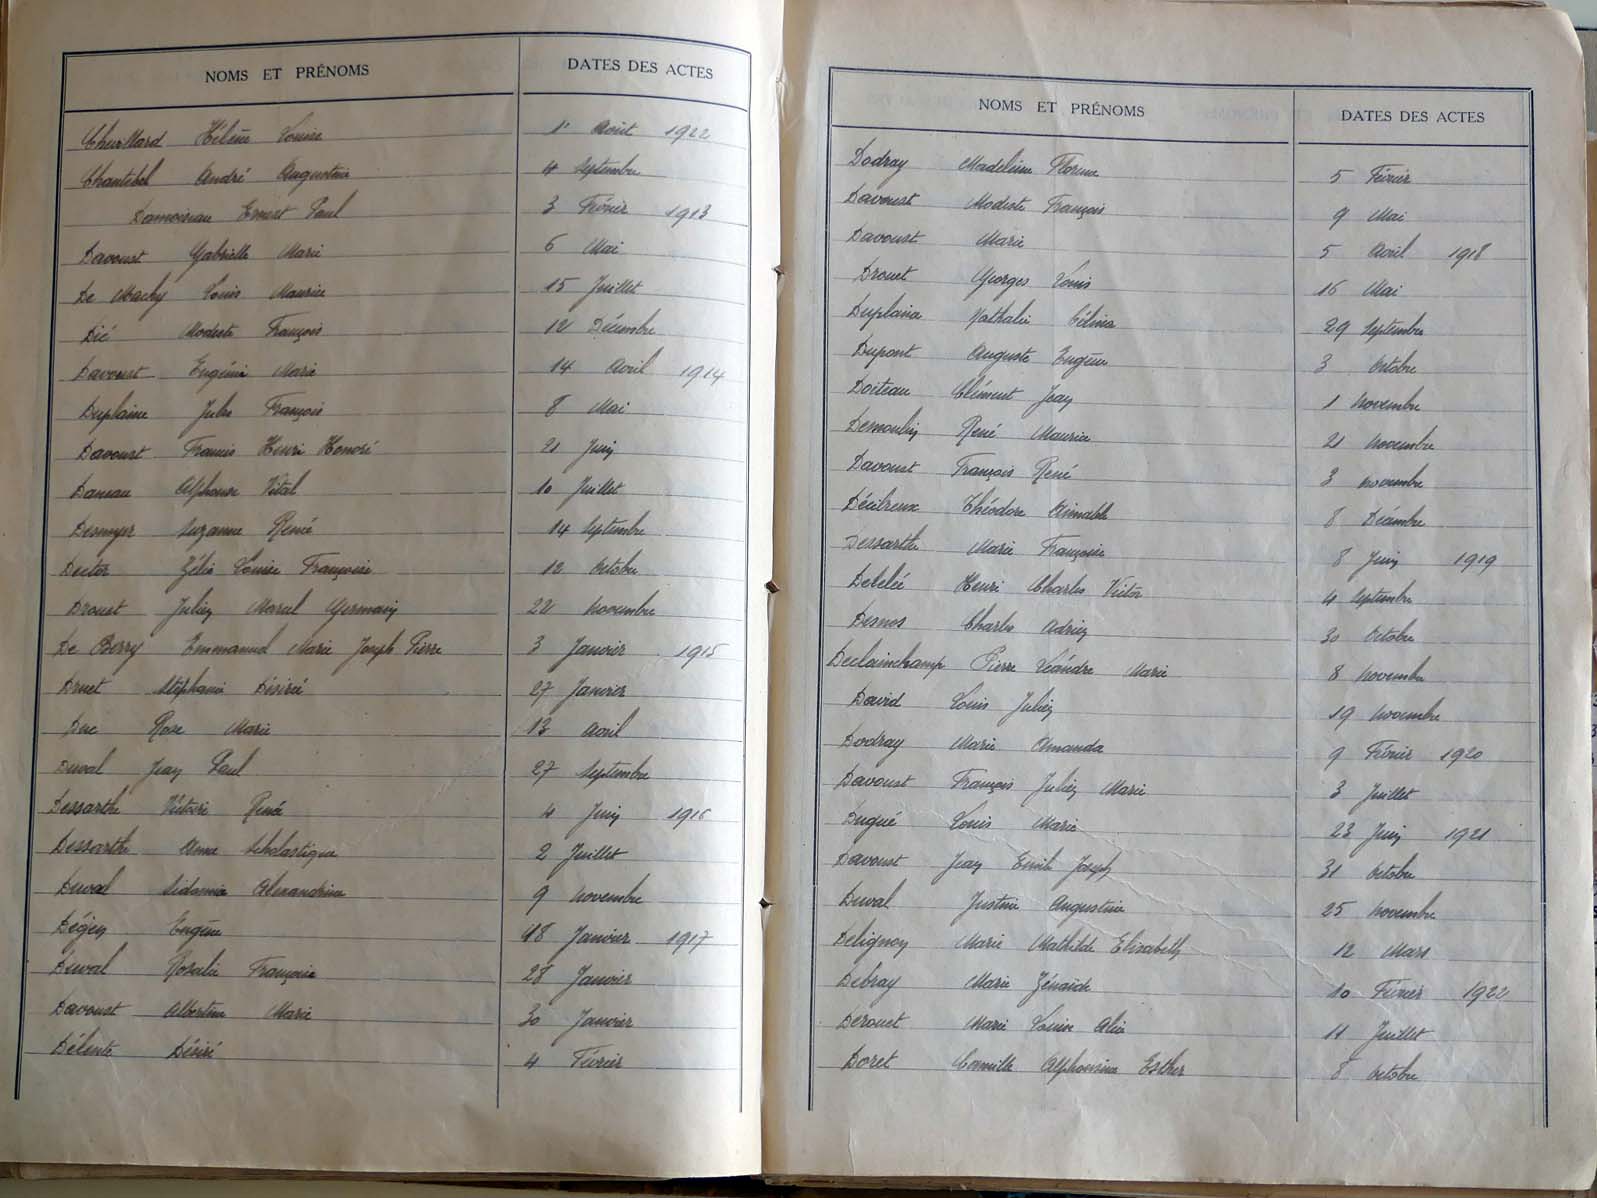 NOMS ET PRÉNOMS DATES DES ACTES
Hélène Louise 1er Août 1922
Chantebel André Augustine 4 Septembre
Damoiseau Ernest Paul 3 Février 1913
Davoust Gabrielle Marie 6 Mai
De Machy Louis Maurice 15 Juillet
Dié Modeste François 12 Décembre
Davoust Eugénie Marie 14 Avril 1914
Duplaine Jules François 8 Mai
Davoust Francis Henri Honoré 21 Juin
Daneau Alphonse Vital 10 Juillet
Suzanne René 14 Septembre
Doctor Zélie Louise Françoise 12 Octobre
Drouet Julien Marcel Germain 22 Novembre
De Berry Emmanuel Marie Joseph Pierre 3 Janvier 1915
Druet Stéphanie Désirée 27 Janvier
Duc Rose Marie 13 Avril
Duval Jean Paul 27 Septembre
Dessarthe Victoire René 4 Juin 1916
Dessarthe Anne Scholastique 2 Juillet
Duval Sidonie Alexandrine 9 Novembre
Eugène 18 Janvier 1917
Duval Rosalie Françoise 28 Janvier
Davoust Albertine Marie 30 Janvier
Délente Désiré 4 Février
NOMS ET PRÉNOMS DATES DES ACTES
Dodray Madeleine Florine 5 Février
Davoust Modeste François 9 Mai
Davoust Marie 5 Avril 1918
Drouet Georges Louis 16 Mai
Duplaina Nathalie Célina 29 Septembre
Dupont Auguste Eugène 3 Octobre
Doiteau Clément Jean 1 Novembre
Demoulin René Maurice 21 Novembre
Davoust François René 3 Novembre
Théodore Aimable 8 Décembre
Dessarthe Marie Françoise 8 Juin 1919
Debelée Henri Charles Victor 4 Septembre
Desnos Charles Adrien 30 Octobre
Declainchamp Pierre Léandre Marie 8 Novembre
David Louis Julien 19 Novembre
Dodray Marie Amanda 9 Février 1920
Davoust François Julien Marie 3 Juillet
Dugué Louis Marie 23 Juin 1921
Davoust Jean Emile Joseph 31 Octobre
Duval Justine Augustine 25 Novembre
Delignon Marie Mathilde Elisabeth 12 Mars
Debray Marie Zénaïde 10 Février 1922
Derouet Marie Louise Alice 11 Juillet
Doret Camille Alphonsine Esther 8 Octobre